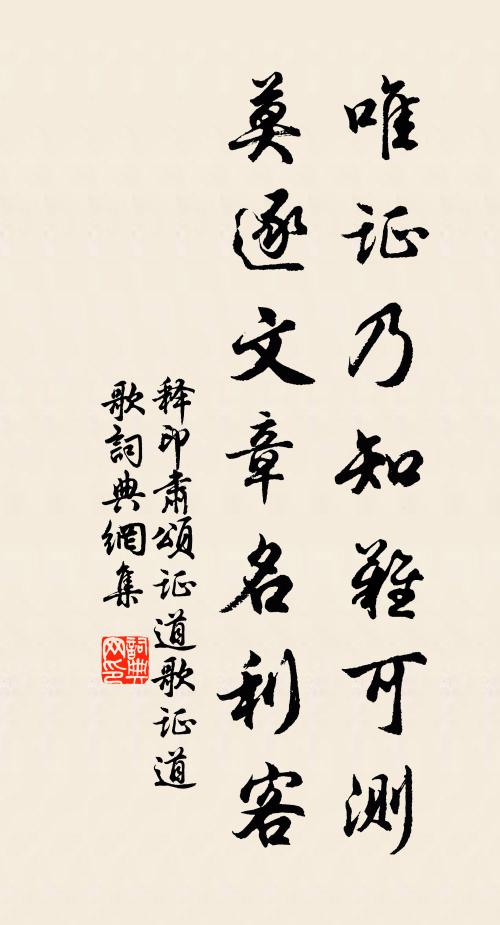 唯证乃知难可测
莫逐文章名利客
释印肃颂证道歌证道
歌詞典網集
詞典
网印